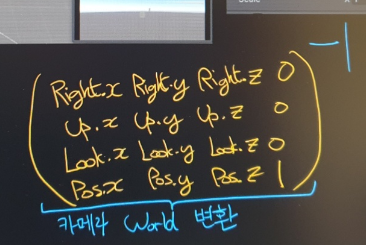 Scale
-1
Right.x Right.y Right.z 0
Up.x Up.y Up.z 0
Look.x Look.y Look.z 0
Pos.x Pos.y Pos.z 1
카메라 World 변환